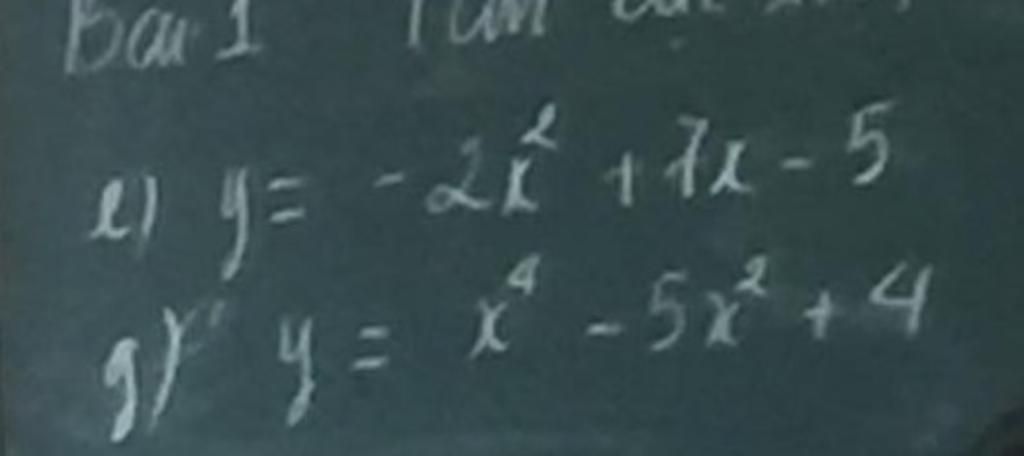 Bài 1 Tìm
e) y = -2x² + 7x - 5
g) y = x⁴ - 5x² + 4